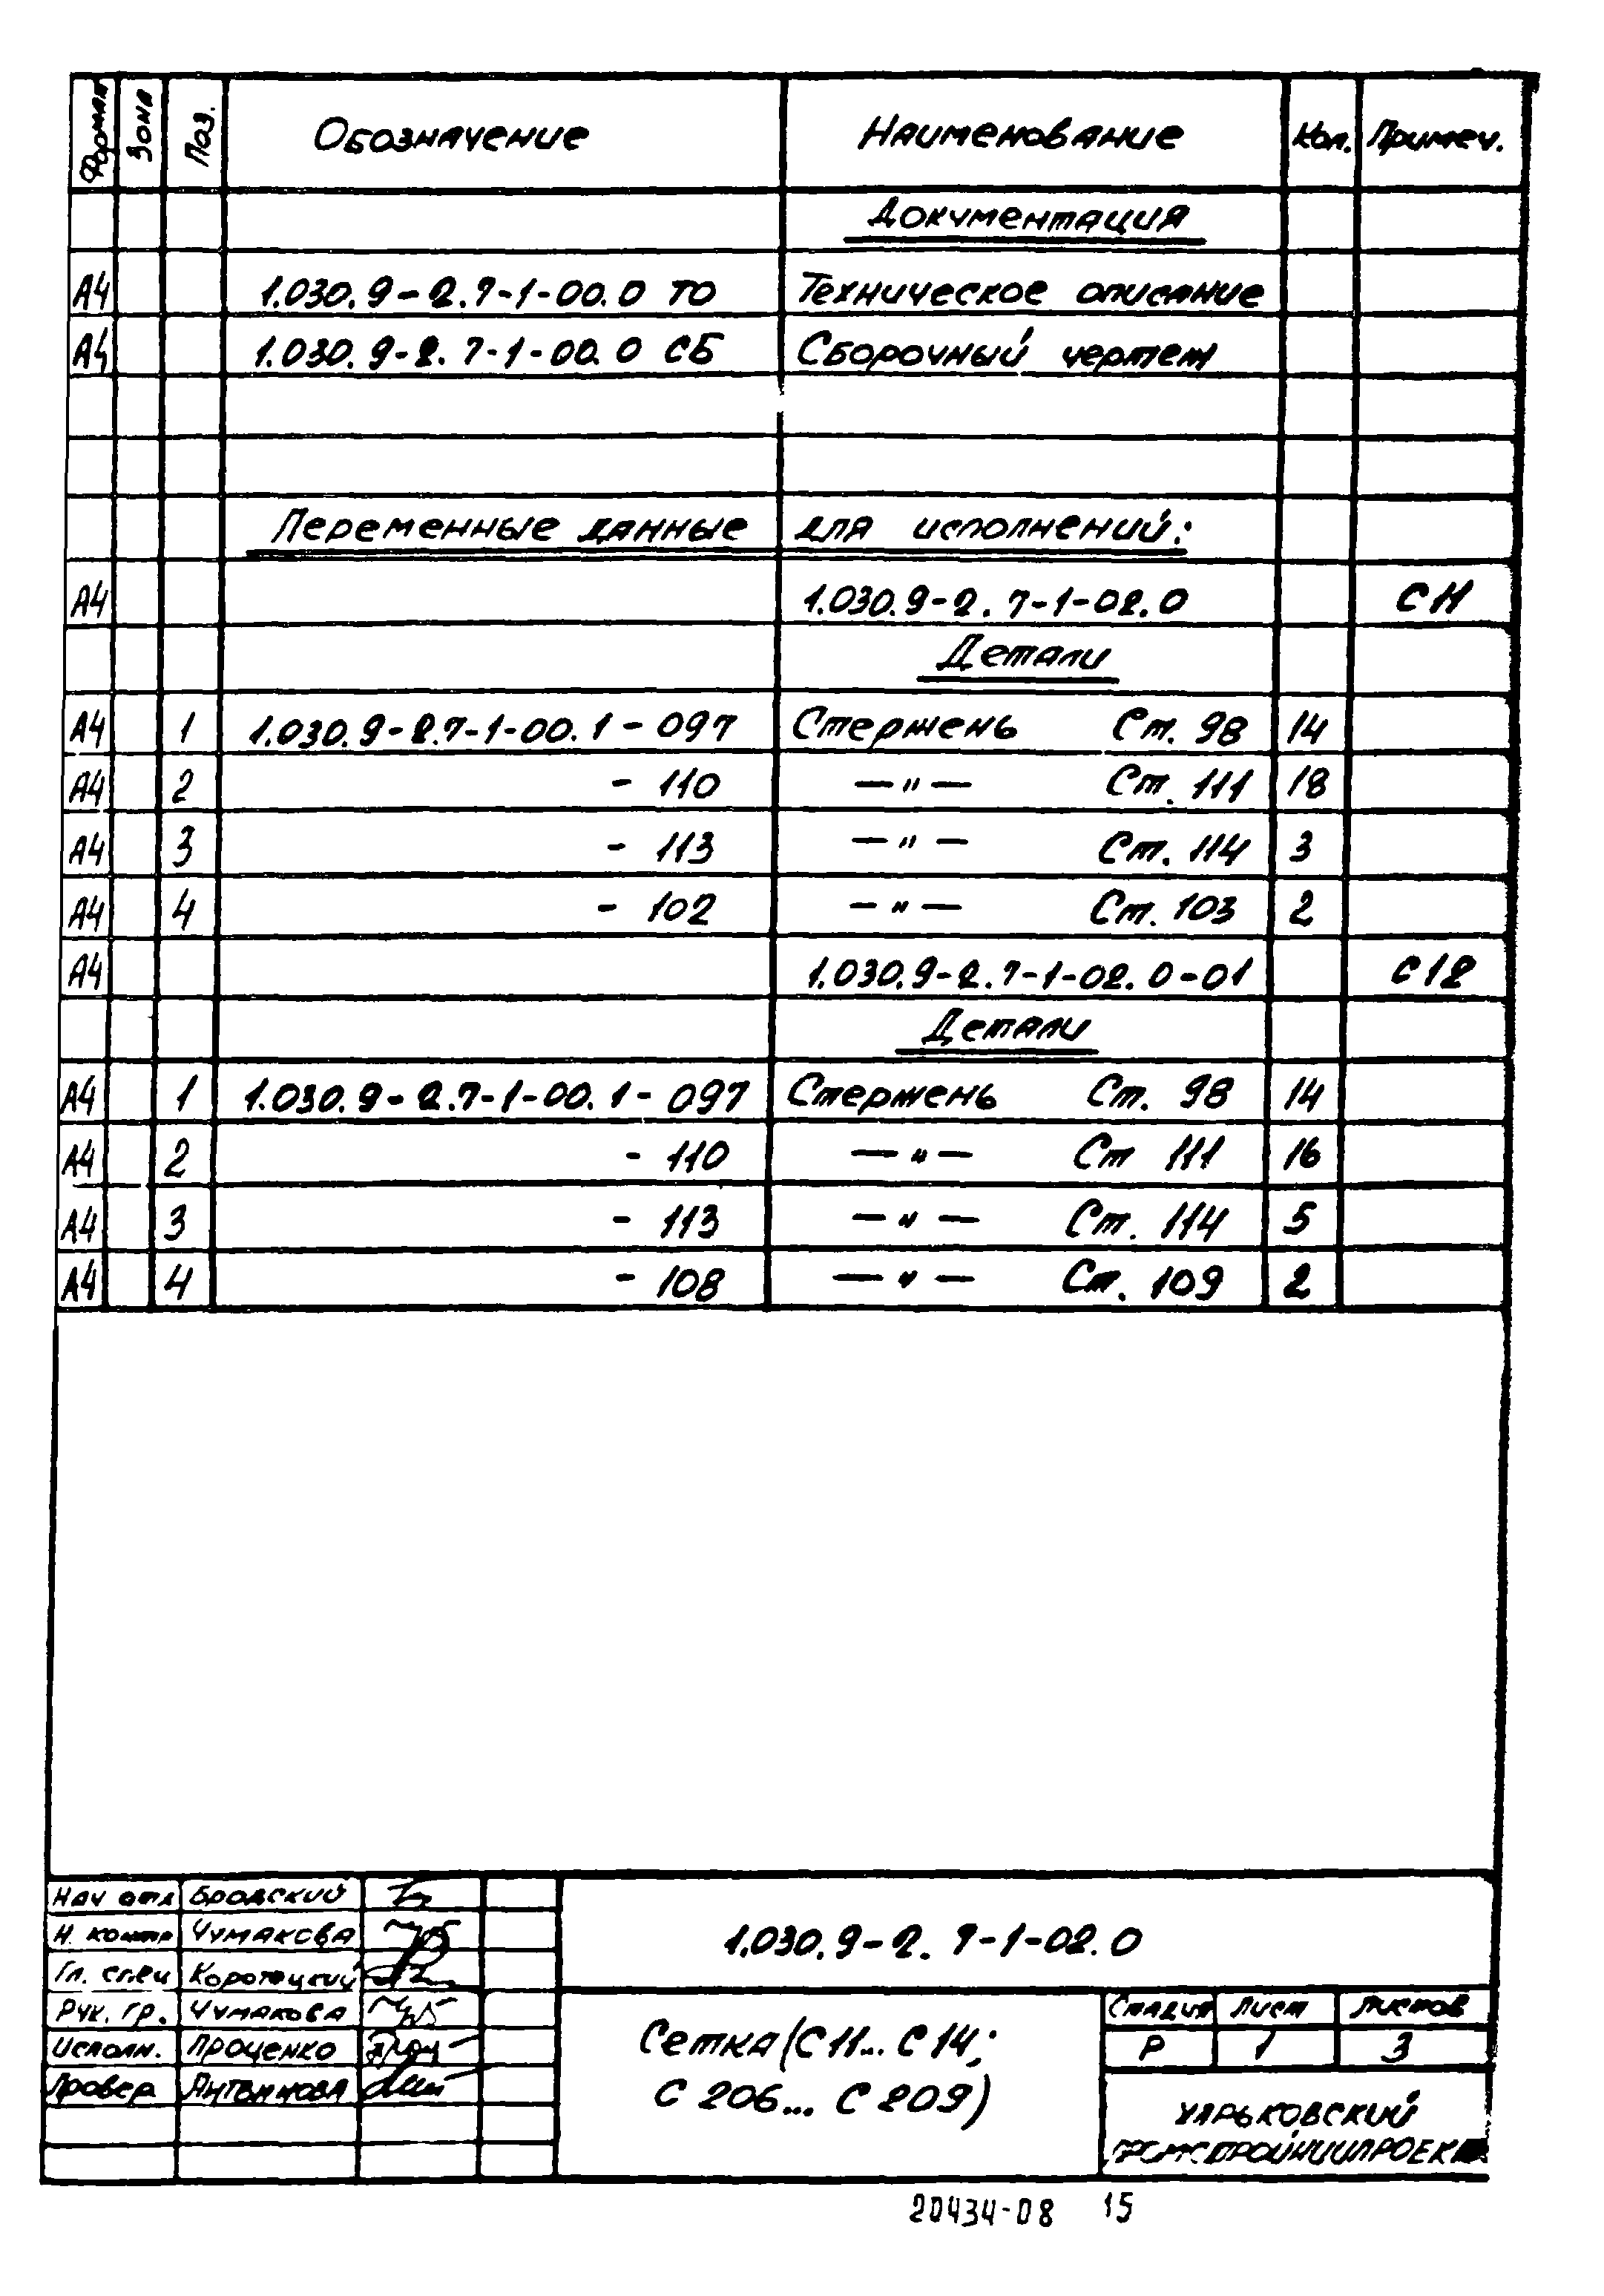 Формат Зона Поз. Обозначение Наименование Кол. Примеч.
Документация
А4 1.030.9-2.7-1-00.0 ТО Техническое описание
А4 1.030.9-2.7-1-00.0 СБ Сборочный чертеж
Переменные данные для исполнений:
А4 1.030.9-2.7-1-02.0 С11
Детали
А4 1 1.030.9-2.7-1-00.1-097 Стержень Ст. 98 14
А4 2 - 110 —"— Ст. 111 18
А4 3 - 113 —"— Ст. 114 3
А4 4 - 102 —"— Ст. 103 2
А4 1.030.9-2.7-1-02.0-01 С12
Детали
А4 1 1.030.9-2.7-1-00.1-097 Стержень Ст. 98 14
А4 2 - 110 —"— Ст 111 16
А4 3 - 113 —"— Ст. 114 5
А4 4 - 108 —"— Ст. 109 2
Нач отд Бродский
Н. контр Чумакова
Гл. спец Коротецкий
Рук. гр. Чумакова
Исполн. Проценко
Провер Антоннова
1.030.9-2.7-1-02.0
Сетка (С11... С14;
С206... С209)
Стадия Лист Листов
Р 1 3
Харьковский
ПРОМСТРОЙНИИПРОЕКТ
20434-08 15